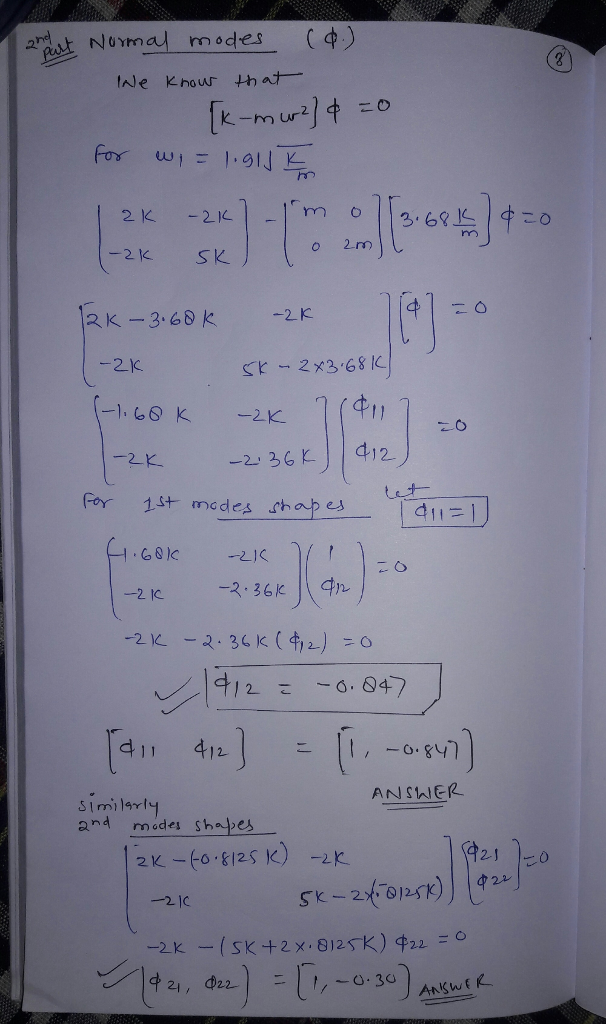 2nd part Normal modes (φ.)
8
We know that
[K-mω²] φ = 0
For ω1 = 1.91√K/m
[2K -2K] - [m 0] [3.68 K/m] φ = 0
[-2K 5K] [0 2m]
[2K - 3.68K -2K] [φ] = 0
[-2K 5K - 2×3.68K]
[-1.68 K -2K] [φ11] = 0
[-2K -2.36K] [φ12]
For 1st modes shapes let φ11 = 1
[-1.68K -2K] (1) = 0
[-2K -2.36K] (φ12)
-2K - 2.36K (φ12) = 0
φ12 = -0.847
[φ11 φ12] = [1, -0.847]
ANSWER
similarly
2nd modes shapes
[2K - (-0.8125 K) -2K] [φ21] = 0
[-2K 5K - 2×(-.8125K)] [φ22]
-2K - (5K + 2×.8125K) φ22 = 0
[φ21, φ22] = [1, -0.30] ANSWER